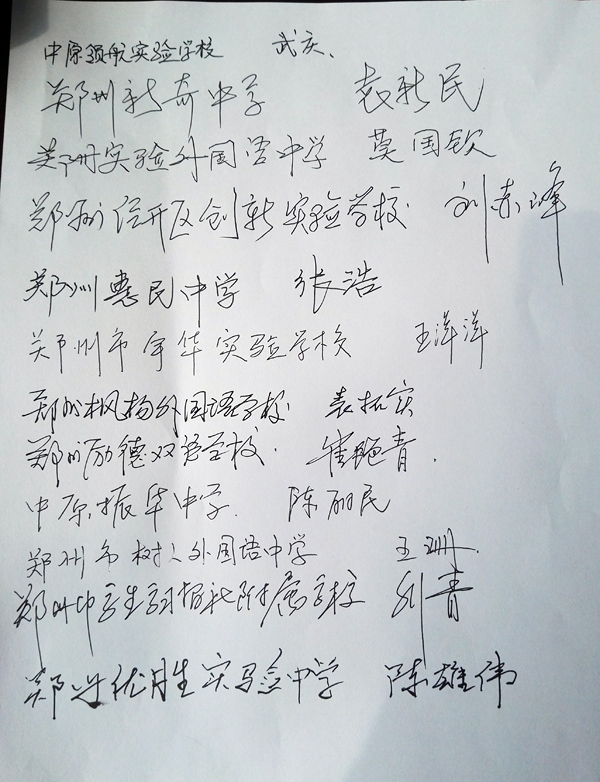 中原领航实验学校 武庆、
郑州新奇中学 袁新民
郑州实验外国语中学 莫国钦
郑州经开区创新实验学校 刘东峰
郑州惠民中学 张浩
郑州市宇华实验学校 王洋洋
郑州枫杨外国语学校 袁拓实
郑州励德双语学校. 崔艳青.
中原振华中学. 陈丽民
郑州市树人外国语中学 王珊.
郑州中学生学习报社附属学校 刘青
郑州优胜实验中学 陈雄伟